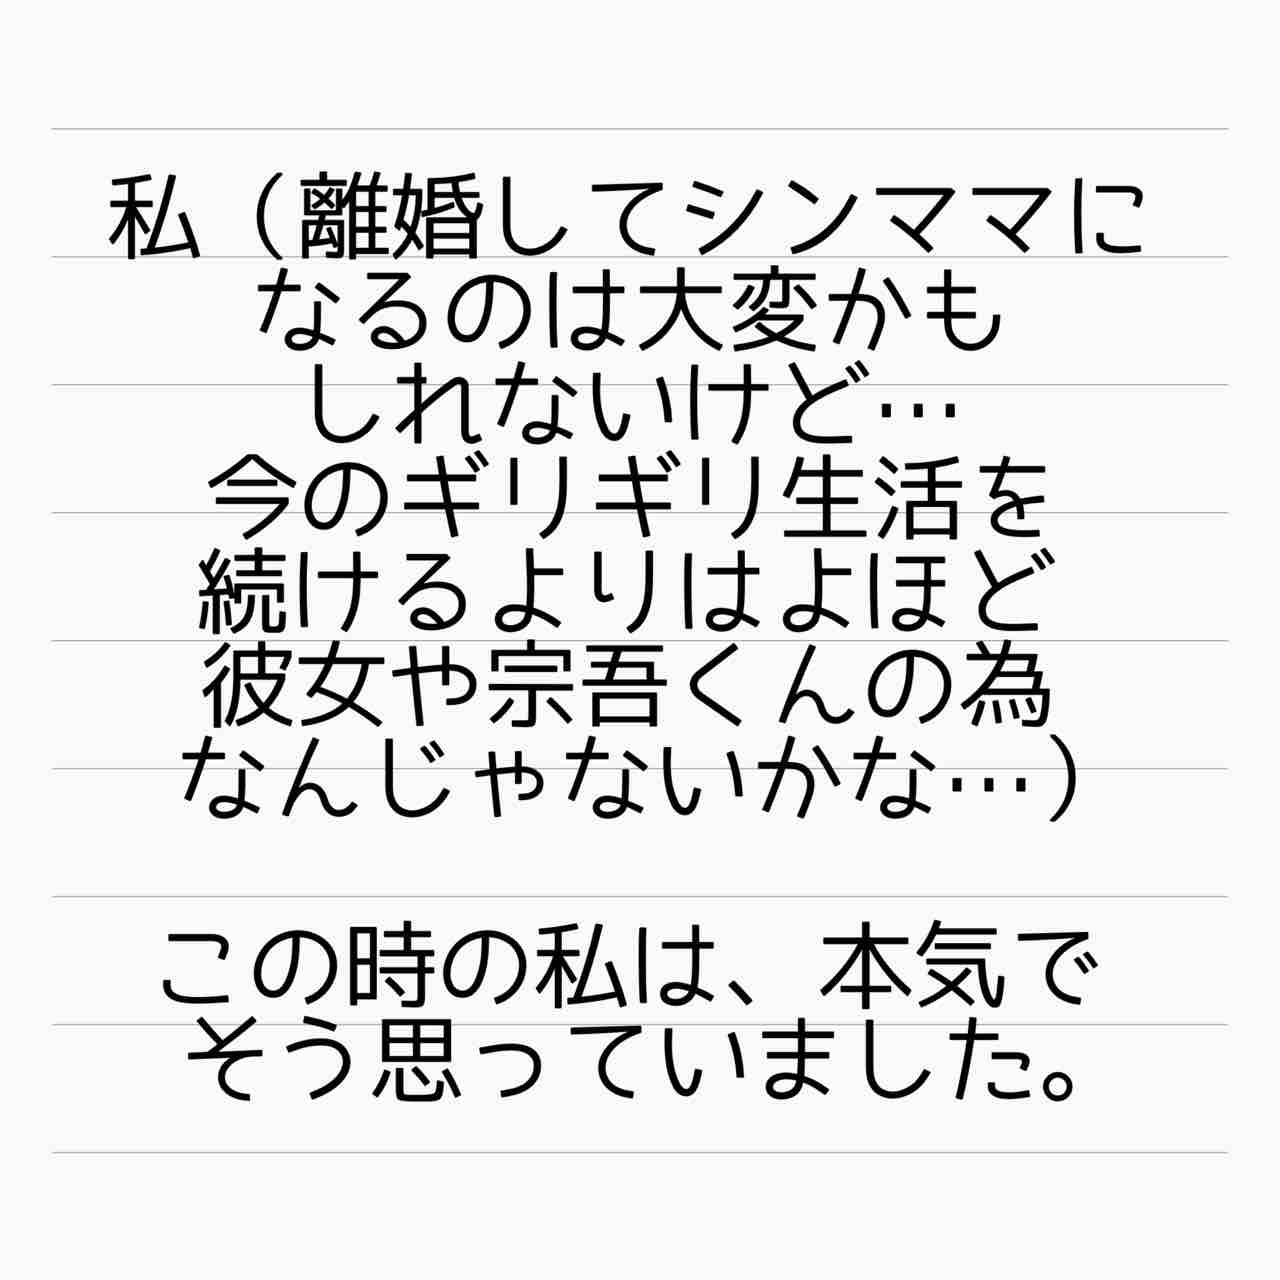 私（離婚してシンママに
なるのは大変かも
しれないけど…
今のギリギリ生活を
続けるよりはよほど
彼女や宗吾くんの為
なんじゃないかな…）
この時の私は、本気で
そう思っていました。